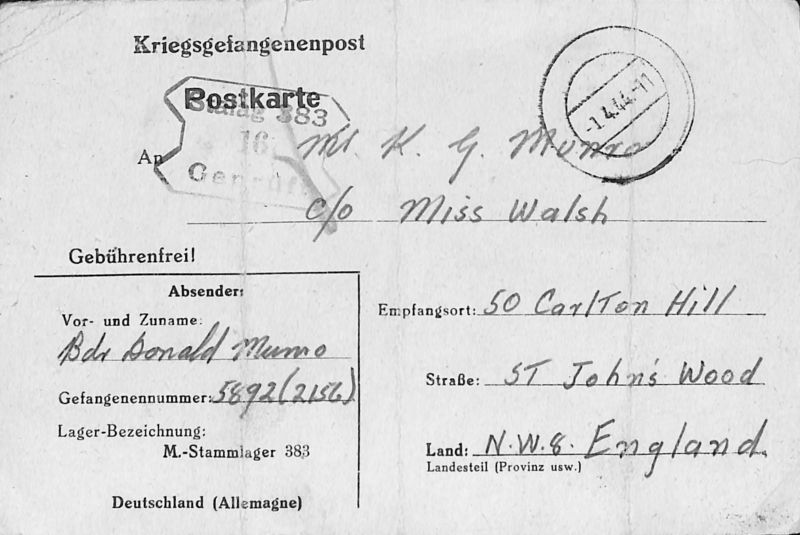 Kriegsgefangenenpost
Postkarte
Stalag 383
16
Geprüft
-1.4.44.-11
An Mr. K. G. Munro
c/o Miss Walsh
Gebührenfrei!
Absender:
Vor- und Zuname:
Bdr Donald Munro
Gefangenennummer: 5892 (2156)
Lager-Bezeichnung:
M.-Stammlager 383
Deutschland (Allemagne)
Empfangsort: 50 Carlton Hill
Straße: St John's Wood
Land: N.W.8. England.
Landesteil (Provinz usw.)